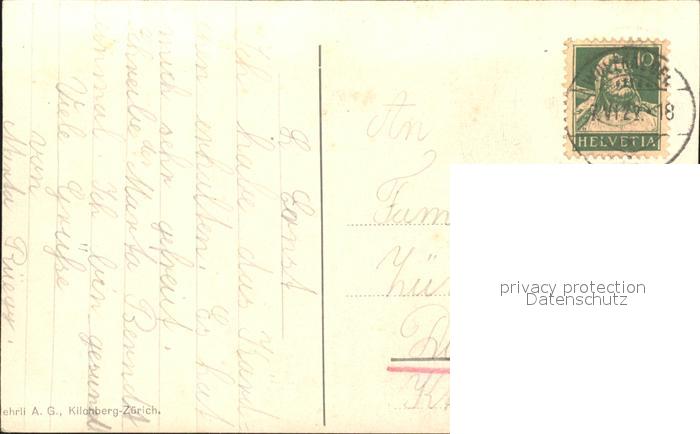 L. Ernst
Ich habe das Kärt-
chen erhalten. Es hat
mich sehr gefreut.
Schreibe der Marta Berndt
einmal. Ich bin gesund
Viele Grüße
von
Marta Rüegg.
ehrli A. G., Kilchberg-Zürich.
An
Fam
Zür
K
10
HELVETIA
18
privacy protection
Datenschutz